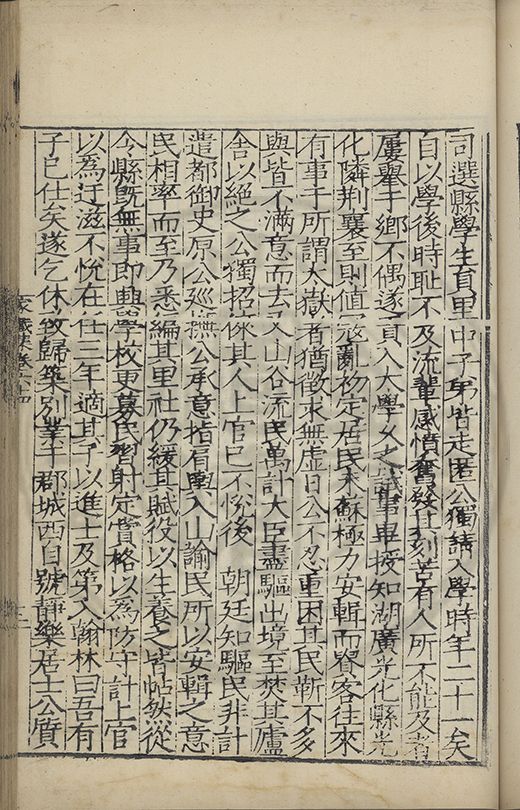 司選縣學生員里中子弟皆走匿公獨請入學時年二十一矣
自以學後時恥不及流輩感憤奮發往刻苦有人所不能及者
屢舉于鄉不偶遂貢入大學久之試事畢授知湖廣光化縣光
化隣荆襄至則值寇亂初定居民未蘇極力安輯而督客往來
有事于所謂大嶽者猶徵求無虛日公不忍重困其民靳不多
與皆不滿意而去入山谷流民萬計大臣盡驅出境至焚其廬
舍以絕之公獨招徠其人上官已不悅後 朝廷知驅民非計
遣都御史原公巡撫公承意指肩輿入山諭民所以安輯之意
民相率而至乃悉編其里社仍緩其賦役以生養之皆帖然從
今縣旣無事即興學校更募民習射定賞格以為防守計上官
以為迂滋不悅在任三年適其子以進士及第入翰林曰吾有
子已仕矣遂乞休致歸築別業于郡城西自號靜樂居士公質